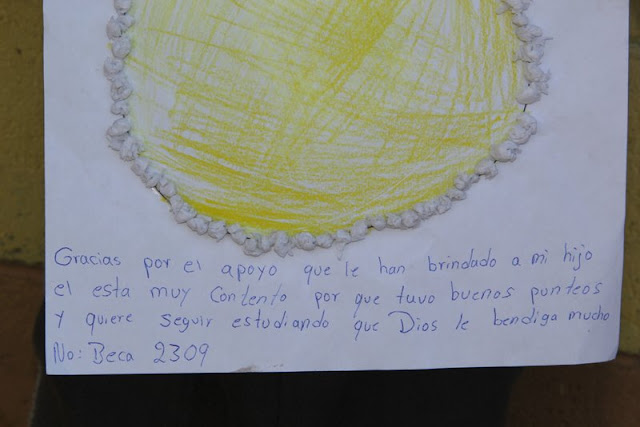 Gracias por el apoyo que le han brindado a mi hijo
el esta muy Contento por que tuvo buenos punteos
y quiere seguir estudiando que Dios le bendiga mucho
No: Beca 2309